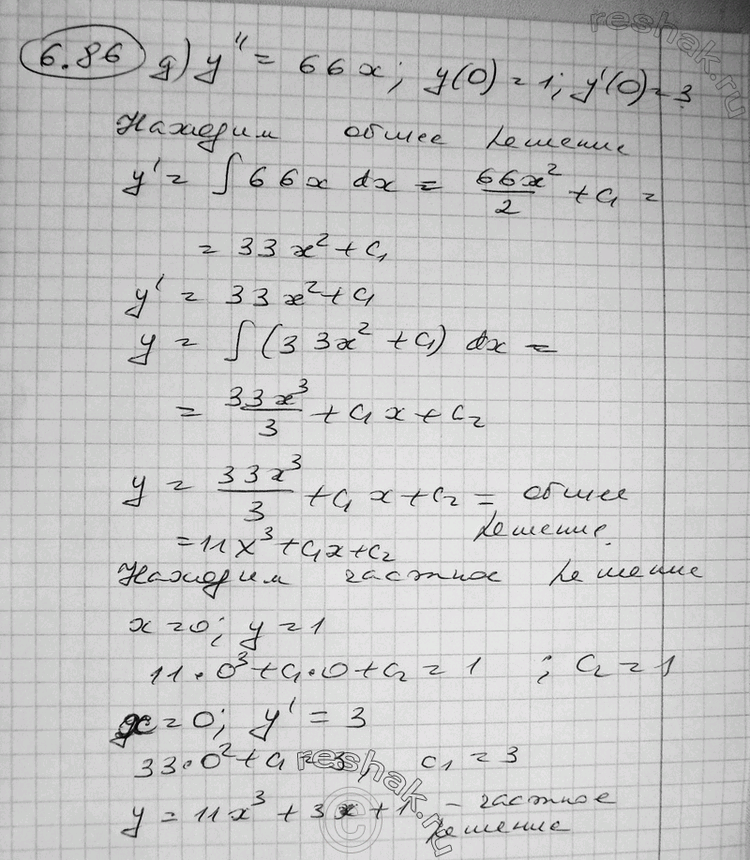 6.86 д) y'' = 66x; y(0) = 1; y'(0) = 3
Находим общее решение
y' = ∫ 66x dx = 66x²/2 + C₁ =
= 33x² + C₁
y' = 33x² + C₁
y = ∫ (33x² + C₁) dx =
= 33x³/3 + C₁x + C₂
y = 33x³/3 + C₁x + C₂ = общее
решение
= 11x³ + C₁x + C₂
Находим частное решение
x = 0; y = 1
11·0³ + C₁·0 + C₂ = 1 ; C₂ = 1
x = 0; y' = 3
33·0² + C₁ = 3 C₁ = 3
y = 11x³ + 3x + 1 - частное
решение
reshak.ru
reshak.ru
©